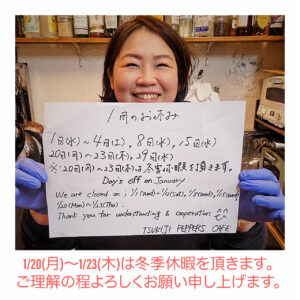 1月のお休み
1日(水)〜4日(土), 8日(水), 15日(水)
20日(月)〜23日(木), 29日(水)
※20日(月)〜23日(木)は冬季休暇を頂きます。
Day's off on January
We are closed on ; 1/1(wed)~1/4(sat), 1/8(wed), 1/15(wed)
1/20(Mon)~1/23(Thu).
Thank you for understanding & cooperation
TSUKIJI PEPPERS CAFE
1/20(月)〜1/23(木)は冬季休暇を頂きます。
ご理解の程よろしくお願い申し上げます。